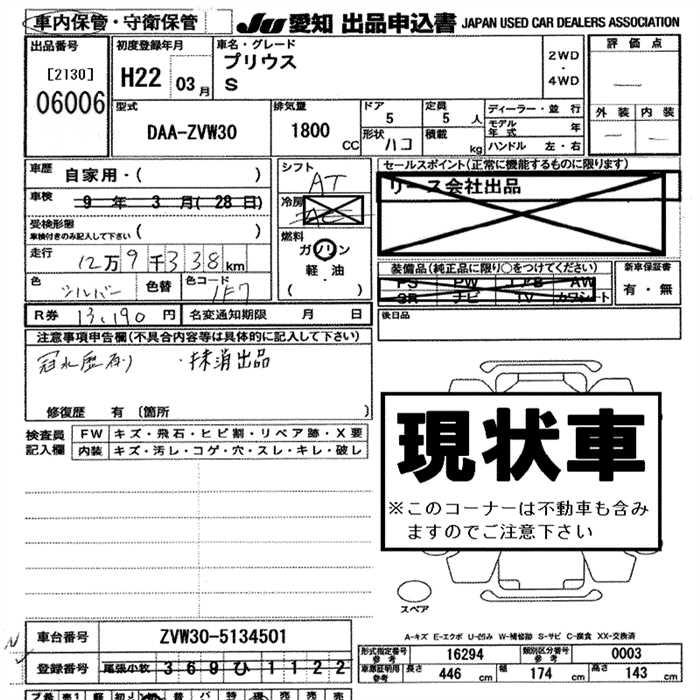 車内保管・守衛保管 JU 愛知 出品申込書 JAPAN USED CAR DEALERS ASSOCIATION
出品番号
[2130]
06006
初度登録年月
H22 03 月
車名・グレード
プリウス
S
2WD
・
4WD
評価点
外装 内装
型式
DAA-ZVW30
排気量
1800 CC
ドア
5
形状
ハコ
定員
5 人
積載
kg
ディーラー・並行
モデル年式 年
ハンドル 左・右
車歴 自家用・( )
車検 9 年 3 月( 28 日)
受検形態
車検付きのみ記入して下さい ( )
走行 12万9千338km
色 シルバー 色替 色コード 1F7
R券 13,190 円 名変通知期限 月 日
シフト
AT
冷房
AC
燃料
ガソリン
軽油
( )
セールスポイント(正常に機能するものに限ります)
リース会社出品
装備品(純正品に限り○をつけてください)
PS PW エアB AW
SR ナビ TV カワシート
新車保証書
有・無
後日品
注意事項申告欄(不具合内容等は具体的に記入して下さい)
冠水歴有り ・抹消出品
修復歴 有 〔箇所 〕
検査員記入欄
FW キズ・飛石・ヒビ割・リペア跡・X要
内装 キズ・汚レ・コゲ・穴・スレ・キレ・破レ
現状車
※このコーナーは不動車も含み
ますのでご注意下さい
スペア
A-キズ E-エクボ U-凹み W-補修跡 S-サビ C-腐食 XX-交換済
車台番号 ZVW30-5134501
登録番号 尾張小牧 3 6 9 ひ 1 1 2 2
形式指定番号参考 16294 類別区分番号参考 0003
車庫証明用参考 長さ 446 cm 幅 174 cm 高さ 143 cm